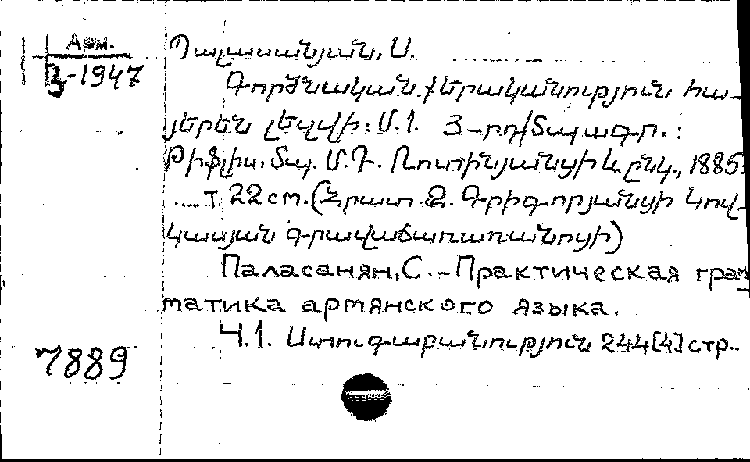 Арм.
3-1947
Պալասանյան, Ս.
Գործնական քերականություն հա-
յերեն լեզվի: Մ.1. 3-րդ տպագր.:
Թիֆլիս: տպ. Մ.Դ. Ռոտինյանցի և ընկ., 1885:
22 см. (Հրատ. Զ. Գրիգորյանցի Կով-
կասյան գրավաճառանոցի)
Паласанян, С. - Практическая грам-
матика армянского языка.
Ч.1. Ստուգաբանություն 244[4] стр.
7889